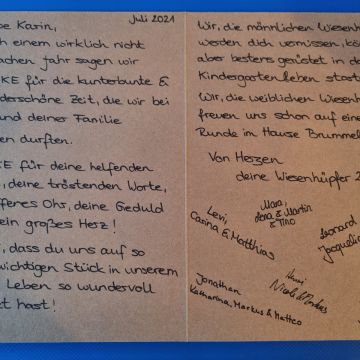 Juli 2021
be Karin,
ch einem wirklich nicht
achen Jahr sagen wir
KE für die kunterbunte &
derschöne Zeit, die wir bei
und deiner Familie
en durften.
KE für deine helfenden
, deine tröstenden Worte,
ffenes Ohr, deine Geduld
ein großes Herz!
, dass du uns auf so
wichtigen Stück in unserem
Leben so wundervoll
et hast!
Wir, die männlichen Wiesenh
werden dich vermissen, kö
aber bestens gerüstet in d
Kindergartenleben start
Wir, die weiblichen Wiesenh
freuen uns schon auf eine
Runde im Hause Brummel
Von Herzen
deine Wiesenhüpfer 2
Mara,
Lena & Martin
& Tino
Levi,
Carina & Matthias
Leonard
Jacqueli
Jonathan
Katharina, Markus & Matteo